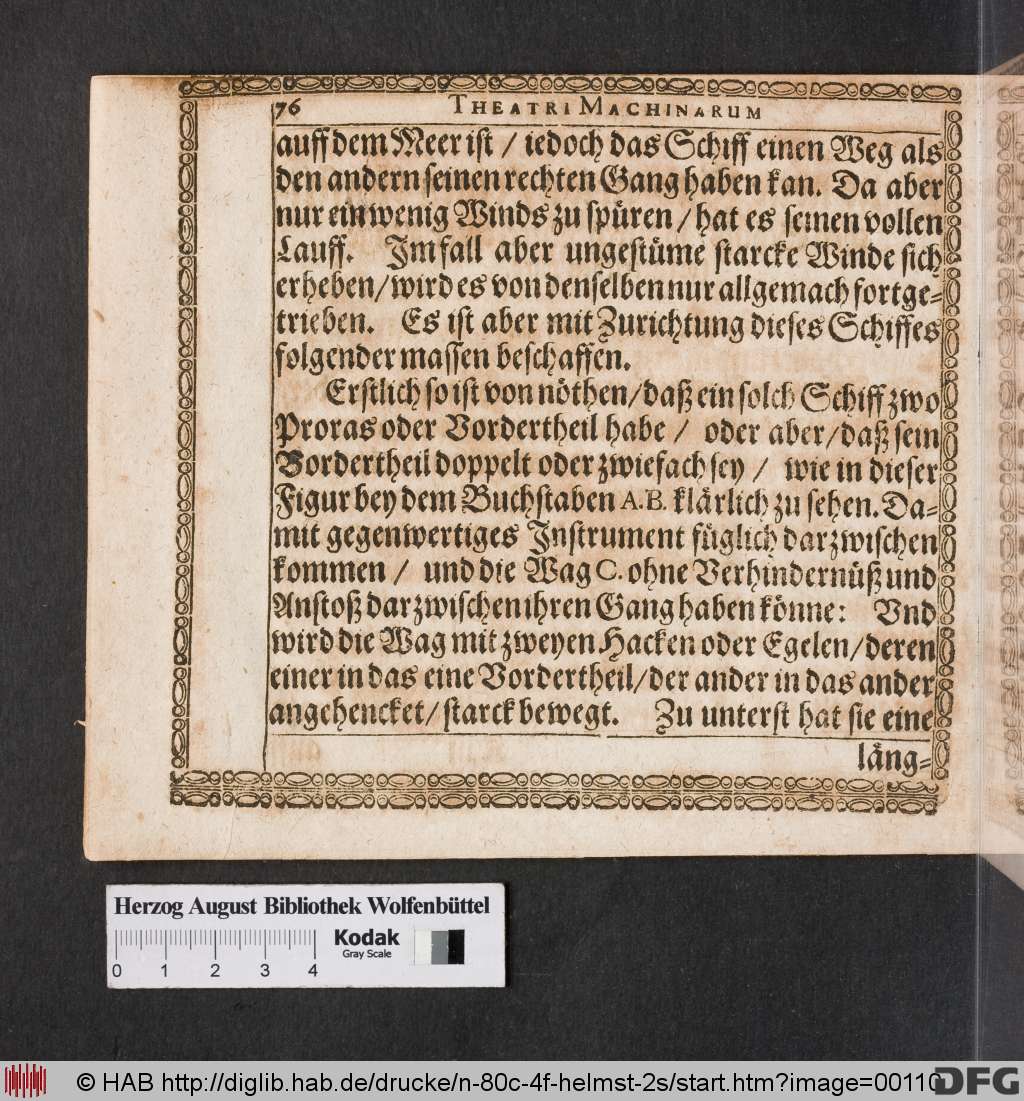 76 THEATRI MACHINARUM
auff dem Meer ist / iedoch das Schiff einen Weg als
den andern seinen rechten Gang haben kan. Da aber
nur ein wenig Winds zu spüren / hat es seinen vollen
Lauff. Im fall aber ungestüme starcke Winde sich
erheben / wird es von denselben nur allgemach fortge-
trieben. Es ist aber mit Zurichtung dieses Schiffes
folgender massen beschaffen.
Erstlich so ist von nöthen / daß ein solch Schiff zwo
Proras oder Vordertheil habe / oder aber / daß sein
Vordertheil doppelt oder zwiefach sey / wie in dieser
Figur bey dem Buchstaben A.B. klärlich zu sehen. Da-
mit gegenwertiges Instrument füglich darzwischen
kommen / und die Wag C. ohne Verhindernüß und
Anstoß darzwischen ihren Gang haben könne: Vnd
wird die Wag mit zweyen Hacken oder Egelen / deren
einer in das eine Vordertheil / der ander in das ander
angehencket / starck bewegt. Zu unterst hat sie eine
läng-
Herzog August Bibliothek Wolfenbüttel
Kodak
Gray Scale
0 1 2 3 4
© HAB http://diglib.hab.de/drucke/n-80c-4f-helmst-2s/start.htm?image=00110
DFG